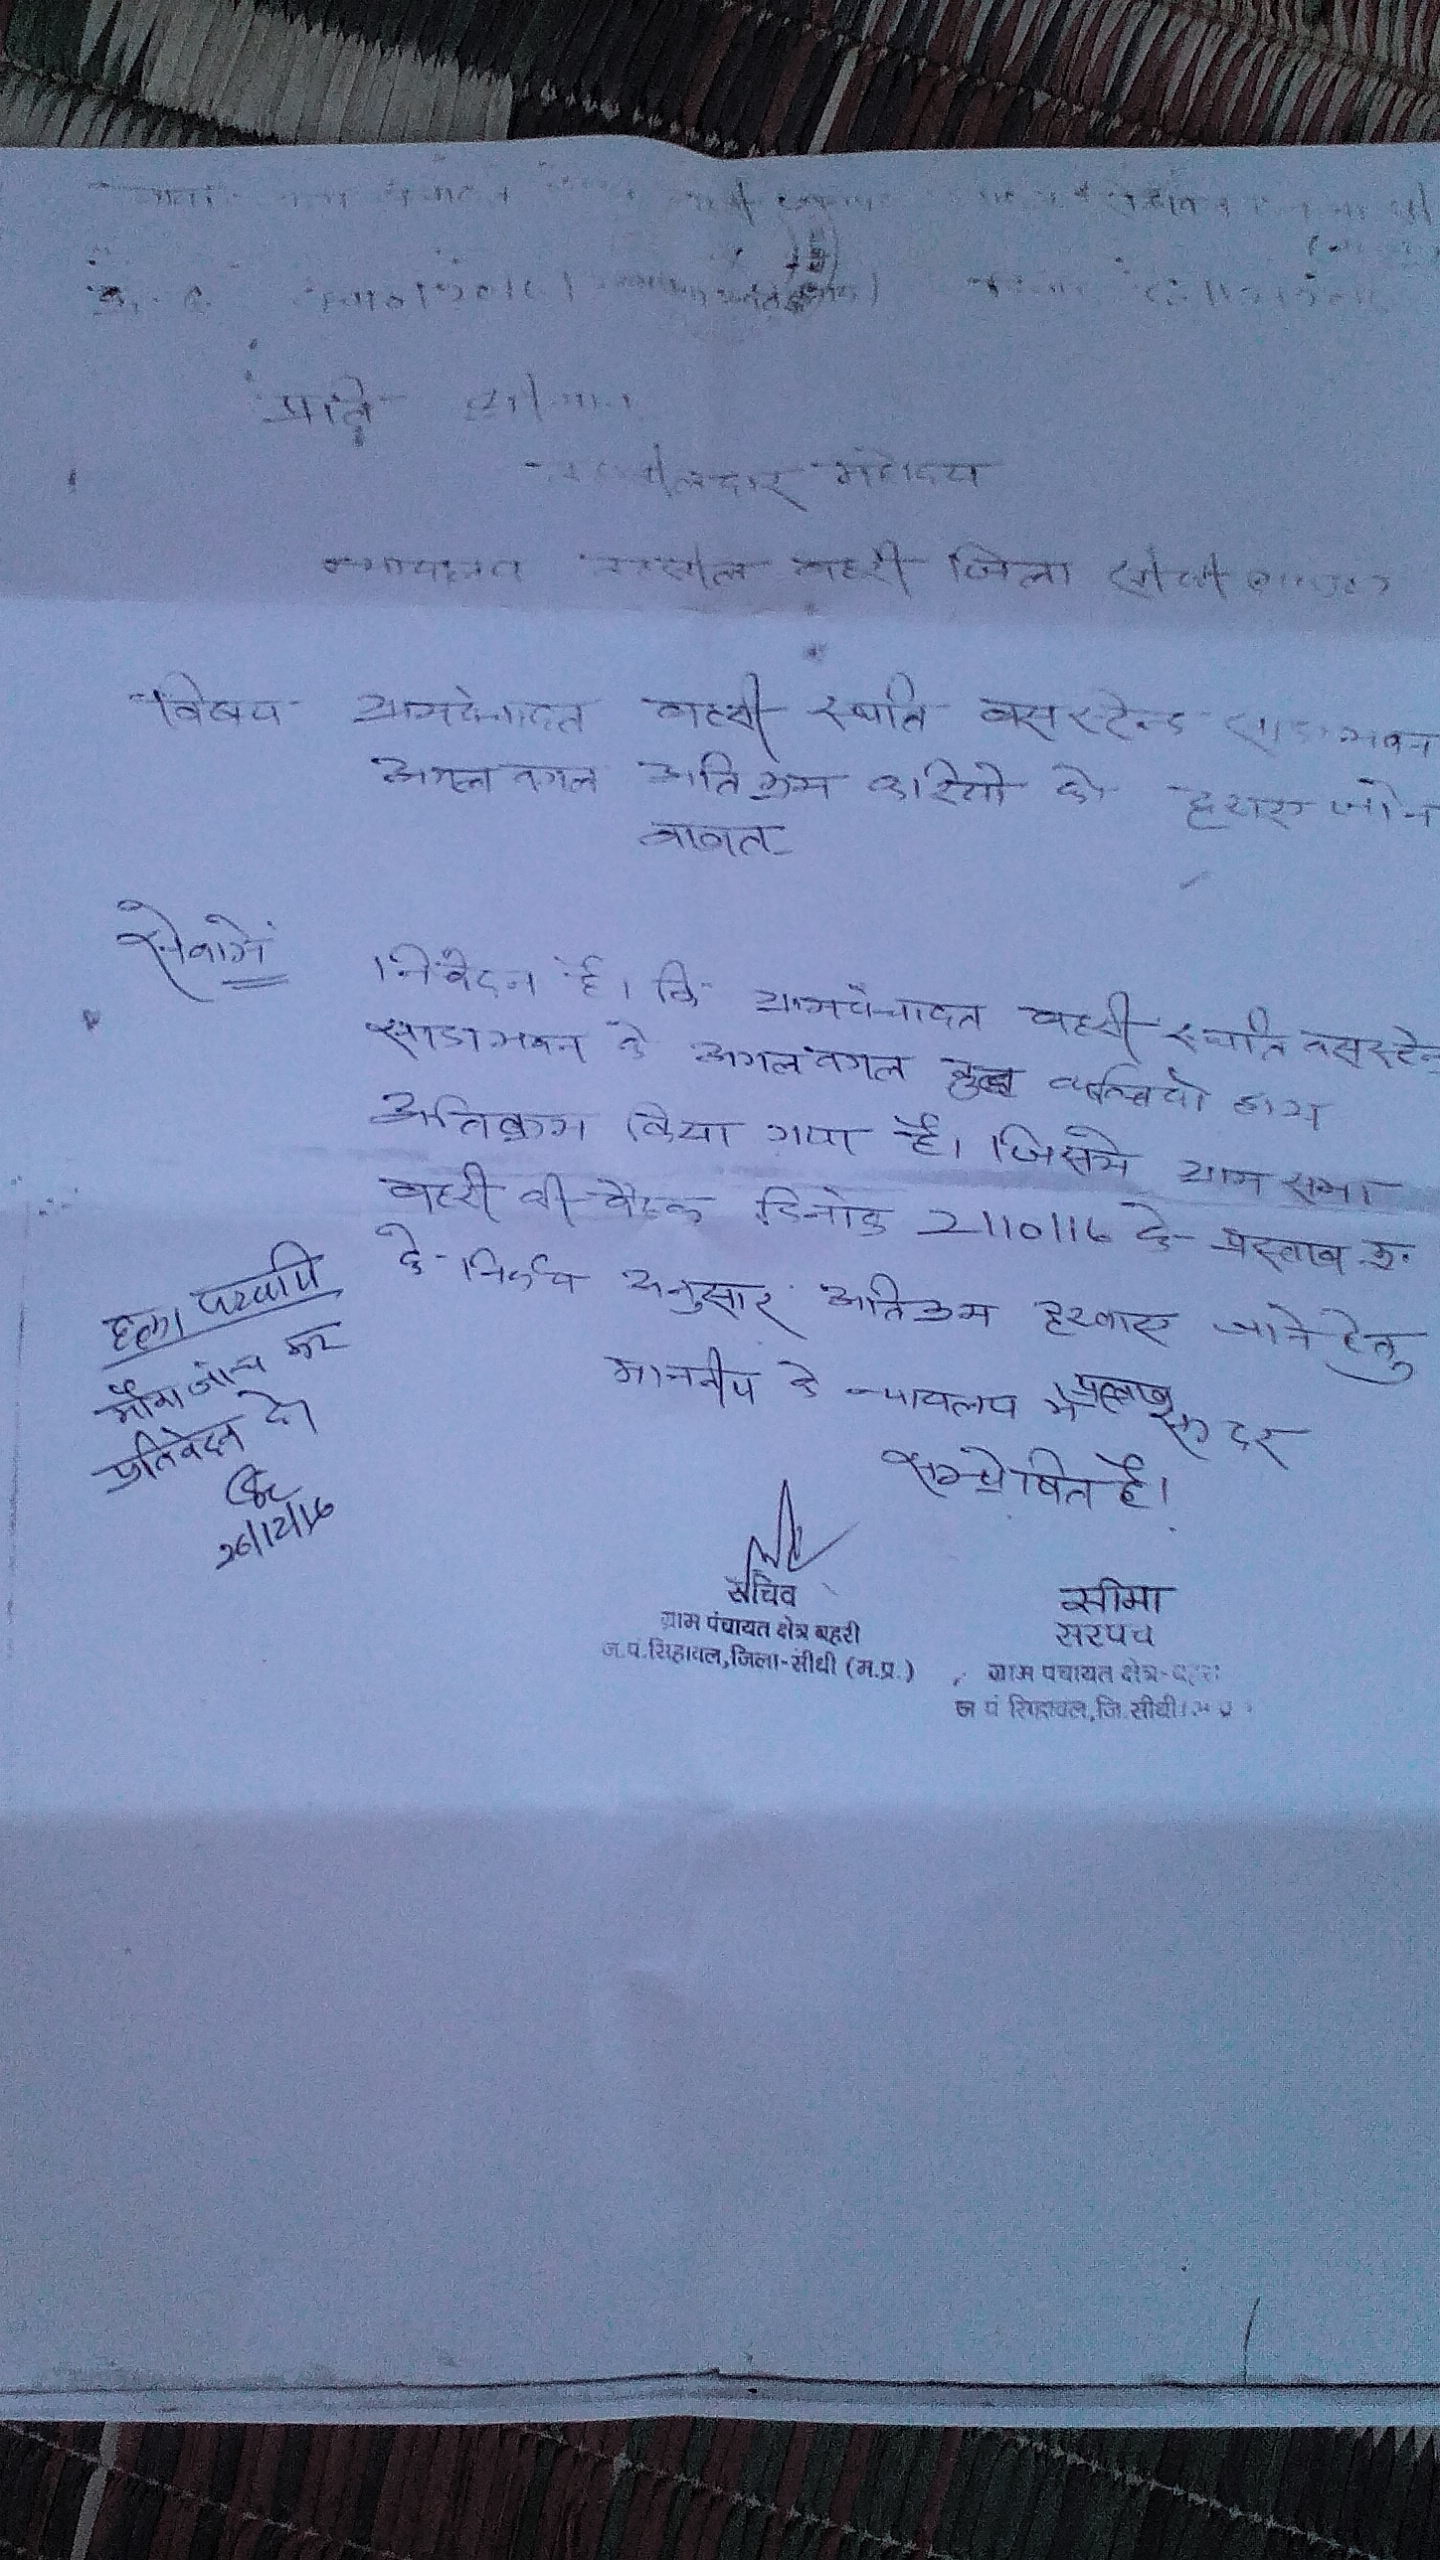 प्रति
महोदय
तहसील बहरी जिला सीधी
विषय ग्रामपंचायत बहरी स्थति बसस्टेन्ड साडा भवन
अगल बगल अतिक्रम कारियो को हटाए जाने
बावत
सेवामें
निवेदन है। कि ग्रामपंचायत बहरी स्थति बसस्टेन्ड
साडा भवन के अगल बगल कुछ व्यक्तियो द्वारा
अतिक्रम किया गया है। जिसमे ग्राम सभा
बहरी की बैठक दिनांक 2/10/16 के प्रस्ताव क्र.
के निर्णय अनुसार अतिक्रम हटवाए जाने हेतु
माननीय के न्यायलय मे प्रस्ताव सादर
सम्प्रेषित है।
हल्का पटवारी
मौका जांच कर
प्रतिवेदन दे।
26/12/16
सचिव
ग्राम पंचायत क्षेत्र बहरी
ज.पं.सिहावल,जिला-सीधी (म.प्र.)
सीमा
सरपंच
ग्राम पंचायत क्षेत्र-बहरी
ज पं सिहावल,जि.सीधी (म प्र